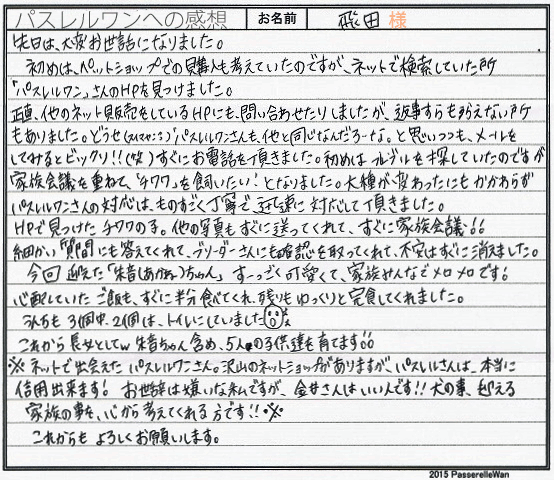 パスレルワンへの感想 お名前 飛田 様
先日は、大変お世話になりました。
初めは、ペットショップでの購入も考えていたのですが、ネットで検索していた所
「パスレルワン」さんのHPを見つけました。
正直、他のネット販売をしているHPにも、問い合わせたりしましたが、返事すらも貰えない所
もありました。どうせ(スイマセン)パスレルワンさんも、他と同じなんだろーな。と思いつつも、メールを
してみるとビックリ!!(笑)すぐにお電話を頂きました。初めは プードルを探していたのですが
家族会議を重ねて、「チワワ」を飼いたい!となりました。犬種が変わったにもかかわらず
パスレルワンさんの対応は、ものすごく丁寧で、迅速に対応して頂きました。
HPで見つけたチワワの子。他の写真もすぐに送ってくれて、すぐに家族会議!!
細かい質問にも答えてくれて、ブリーダーさんにも確認を取ってくれて、不安はすぐに消えました。
今回 迎えた「朱音(あかね)ちゃん」すーっごく可愛くて、家族みんなでメロメロです!
心配していたご飯も、すぐに半分食べてくれ、残りもゆっくりと完食してくれました。
うんちも 3個中、2個は、トイレにしていました
これから長女としてw 朱音ちゃん含め、5人の子供達を育てます!!
※ネットで出会えたパスレルワンさん。沢山のネットショップがありますが、パスレルさんは、本当に
信用出来ます! お世辞は嫌いな私ですが、金井さんはいい人です!!犬の事、迎える
家族の事を、心から考えてくれる方です!!※
これからも よろしくお願いします。
2015 PasserelleWan